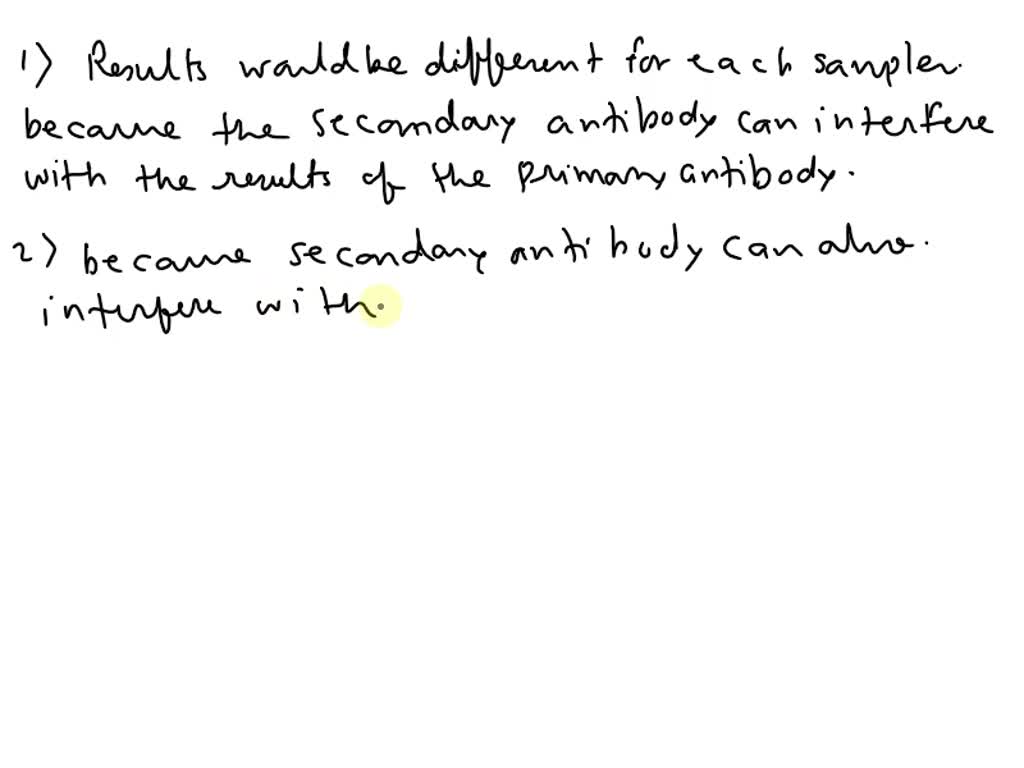 1) Results would be different for each sample.
because the secondary antibody can interfere
with the results of the primary antibody.
2) because secondary antibody can also.
interfere with.